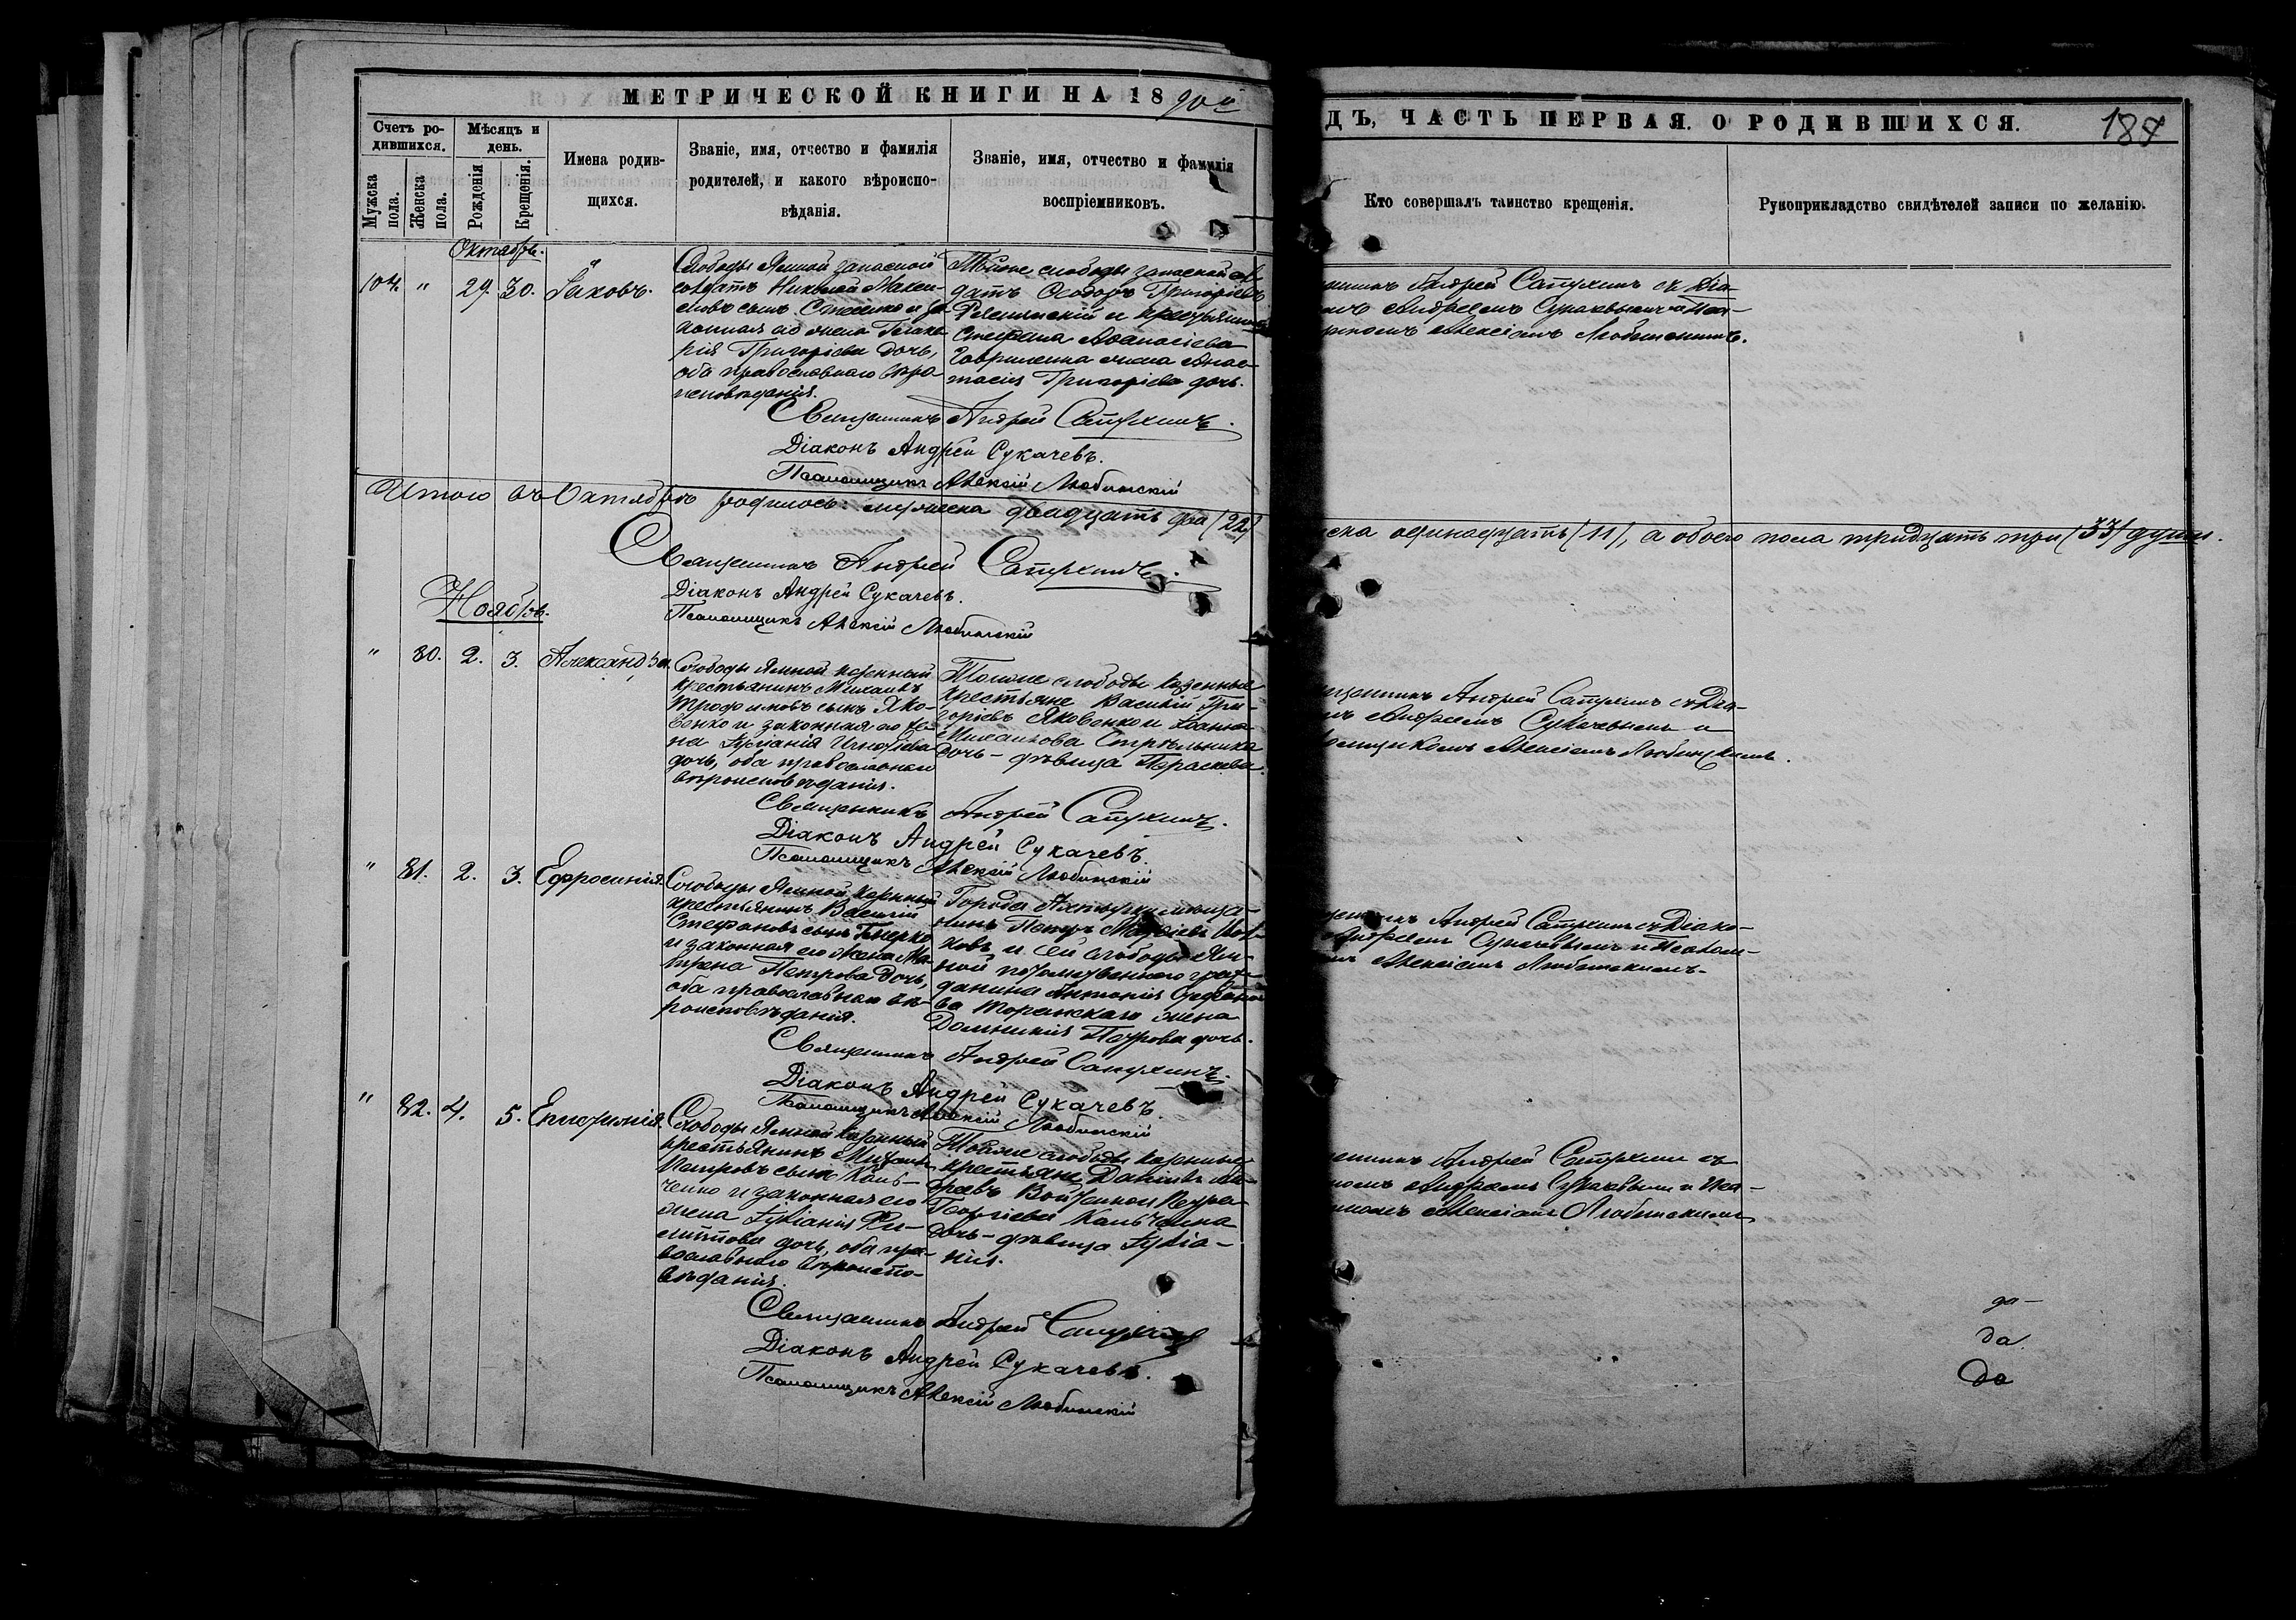 МЕТРИЧЕСКОЙ КНИГИ НА 1890й
ДЪ, ЧАСТЬ ПЕРВАЯ. О РОДИВШИХСЯ.
187
Счетъ ро-
дившихся.
Мѣсяцъ и
день.
Мужска
пола.
Женска
пола.
Рожденія
Крещенія.
Имена родив-
щихся.
Званіе, имя, отчество и фамилія
родителей, и какого вѣроиспо-
вѣданія.
Званіе, имя, отчество и фамилія
воспріемниковъ.
Кто совершалъ таинство крещенія.
Рукоприкладство свидѣтелей записи по желанію.
Октябрь.
104. " 29. 30. Іаковъ.
Слободы Ямной запасной
солдатъ Николай Макси-
мовъ сынъ и за-
конная его жена
рія Григоріева дочь,
оба православнаго вѣро-
исповѣданія.
Тойже слободы запасной сол-
датъ Ѳеодоръ Григорьевъ
и крестьянина
Стефана Аѳанасіева
Гавриленка жена Анас-
тасія Григоріева дочь.
Андрей Сапухинъ съ Діа-
Андреемъ Сукачевымъ и Пса-
Алексіемъ Любинскимъ.
Священникъ Андрей Сапухинъ.
Діаконъ Андрей Сукачевъ.
Псаломщикъ Алексій Любинскій
Итого въ Октябрѣ родилось: мужеска двадцать два (22)
ска одинадцать (11), а обоего пола тридцать три (33) души.
Священникъ Андрей Сапухинъ.
Діаконъ Андрей Сукачевъ.
Псаломщикъ Алексій Любинскій
Ноябрь.
" 80. 2. 3. Александра.
Слободы Ямной казенный
крестьянинъ Михаилъ
Трофимовъ сынъ Яко-
венко и законная его же-
на Іуліанія Игнатіева
дочь, оба православнаго
вѣроисповѣданія.
Тойже слободы казенные
крестьяне Василій Гри-
горіевъ Яковенко и Іоанна
Михаилова Стрѣльника
дочь - дѣвица Параскева.
Андрей Сапухинъ съ Діа-
Андреемъ Сукачевымъ и
Алексіемъ Любинскимъ.
Священникъ Андрей Сапухинъ.
Діаконъ Андрей Сукачевъ.
Псаломщикъ Алексій Любинскій
" 81. 2. 3. Ефросинія.
Слободы Ямной казенный
крестьянинъ Василій
Стефановъ сынъ
и законная его жена Ма-
трона Петрова дочь,
оба православнаго вѣ-
роисповѣданія.
Города Ахтырки мѣща-
нинъ Петръ
и сей слободы Ям-
ной потомственнаго граж-
данина Антонія
жена
Домникія Петрова дочь.
Андрей Сапухинъ съ Діако-
Андреемъ Сукачевымъ и Псалом-
Алексіемъ Любинскимъ.
Священникъ Андрей Сапухинъ.
Діаконъ Андрей Сукачевъ.
Псаломщикъ Алексій Любинскій
" 82. 4. 5.
Слободы Ямной казенный
крестьянинъ Михаилъ
Петровъ сынъ Каль-
ченко и законная его
жена Іуліанія Фи-
липпова дочь, оба пра-
вославнаго вѣроиспо-
вѣданія.
Тойже слободы казенные
крестьяне Даніилъ Ан-
дреевъ и Петра
Георгіева Кальченка
дочь - дѣвица Іуліа-
нія.
Андрей Сапухинъ съ
Андреемъ Сукачевымъ и Пса-
Алексіемъ Любинскимъ
Священникъ Андрей Сапухинъ
Діаконъ Андрей Сукачевъ.
Псаломщикъ Алексій Любинскій
да -
да.
Да